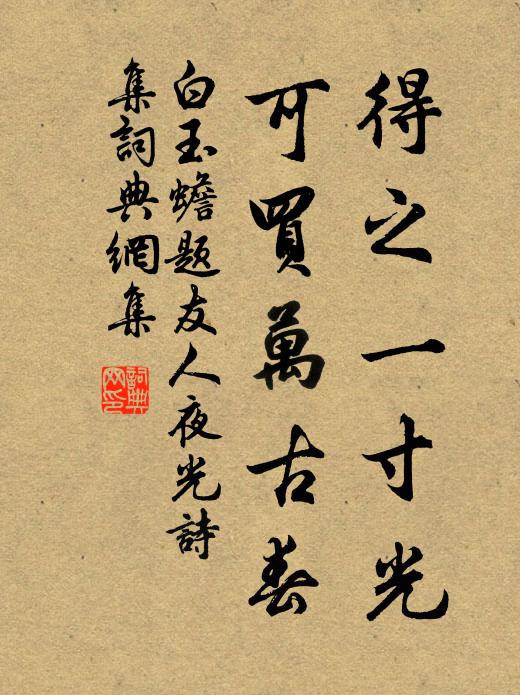 得之一寸光
可買萬古春
白玉蟾题友人夜光詩
集詞典網集
詞典网印